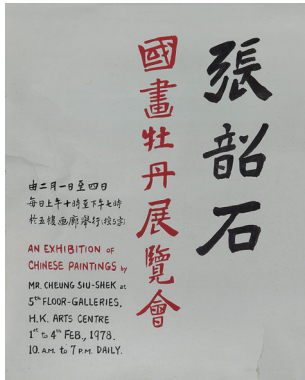 張韶石
國畫牡丹展覽會
由二月一日至四日
每日上午十時至下午七時
於五樓画廊舉行
AN EXHIBITION OF
CHINESE PAINTINGS by
MR. CHEUNG SIU-SHEK at
5th FLOOR-GALLERIES,
H.K. ARTS CENTRE
1st to 4th FEB., 1978.
10. A.M. to 7 P.M. DAILY.